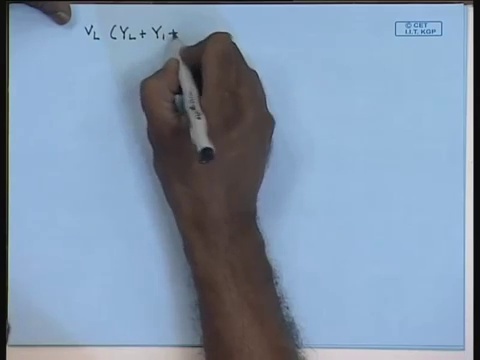 V_L (Y_L + Y_1 +
© CET
I.I.T. KGP